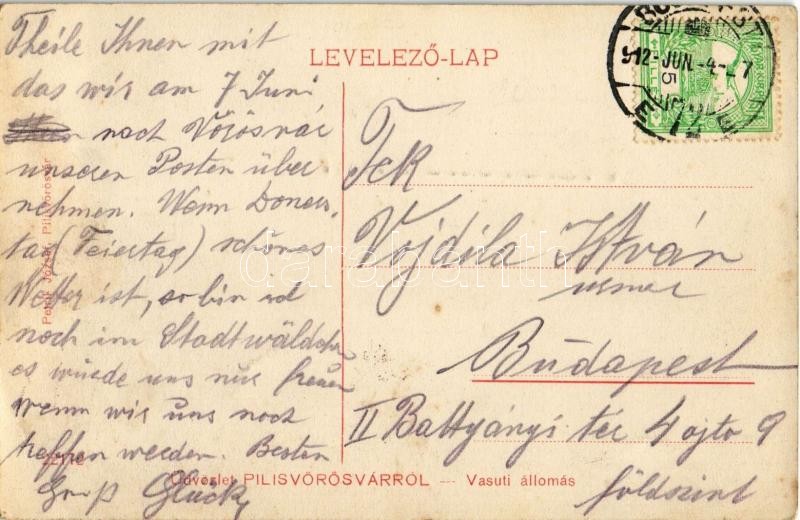 Theile Ihnen mit
das wir am 7 Juni
nach Vörösvár
unseren Posten über-
nehmen. Wenn Doners,
tag (Feiertag) schönes
Wetter ist, so bin ich
noch im Stadtwäldchen
es würde uns nur freuen
wenn wir uns noch
treffen werden. Besten
Gruß Glück
LEVELEZŐ-LAP
Tek
Vojdila István
Budapest
II Battyányi tér 4 ajto 9
földszint
Üdvözlet PILISVÖRÖSVÁRRÓL — Vasuti állomás
József, Pilisvörösvár
912-JUN.-4-
darabanth.com